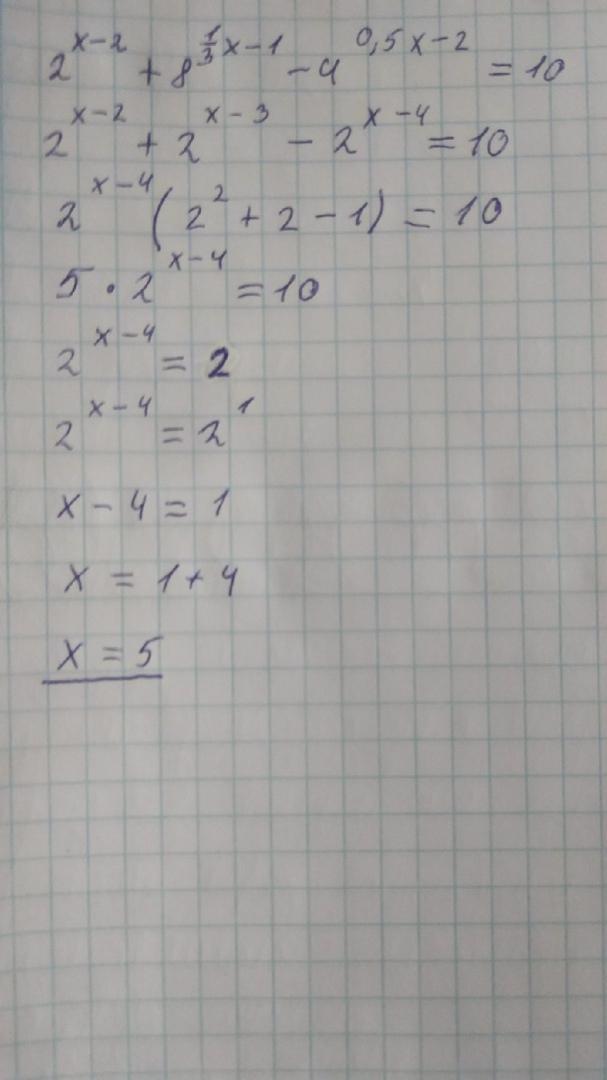 2^{x-2} + 8^{\frac{1}{3}x-1} - 4^{0,5x-2} = 10
2^{x-2} + 2^{x-3} - 2^{x-4} = 10
2^{x-4} (2^2 + 2 - 1) = 10
5 · 2^{x-4} = 10
2^{x-4} = 2
2^{x-4} = 2^1
x - 4 = 1
x = 1 + 4
x = 5